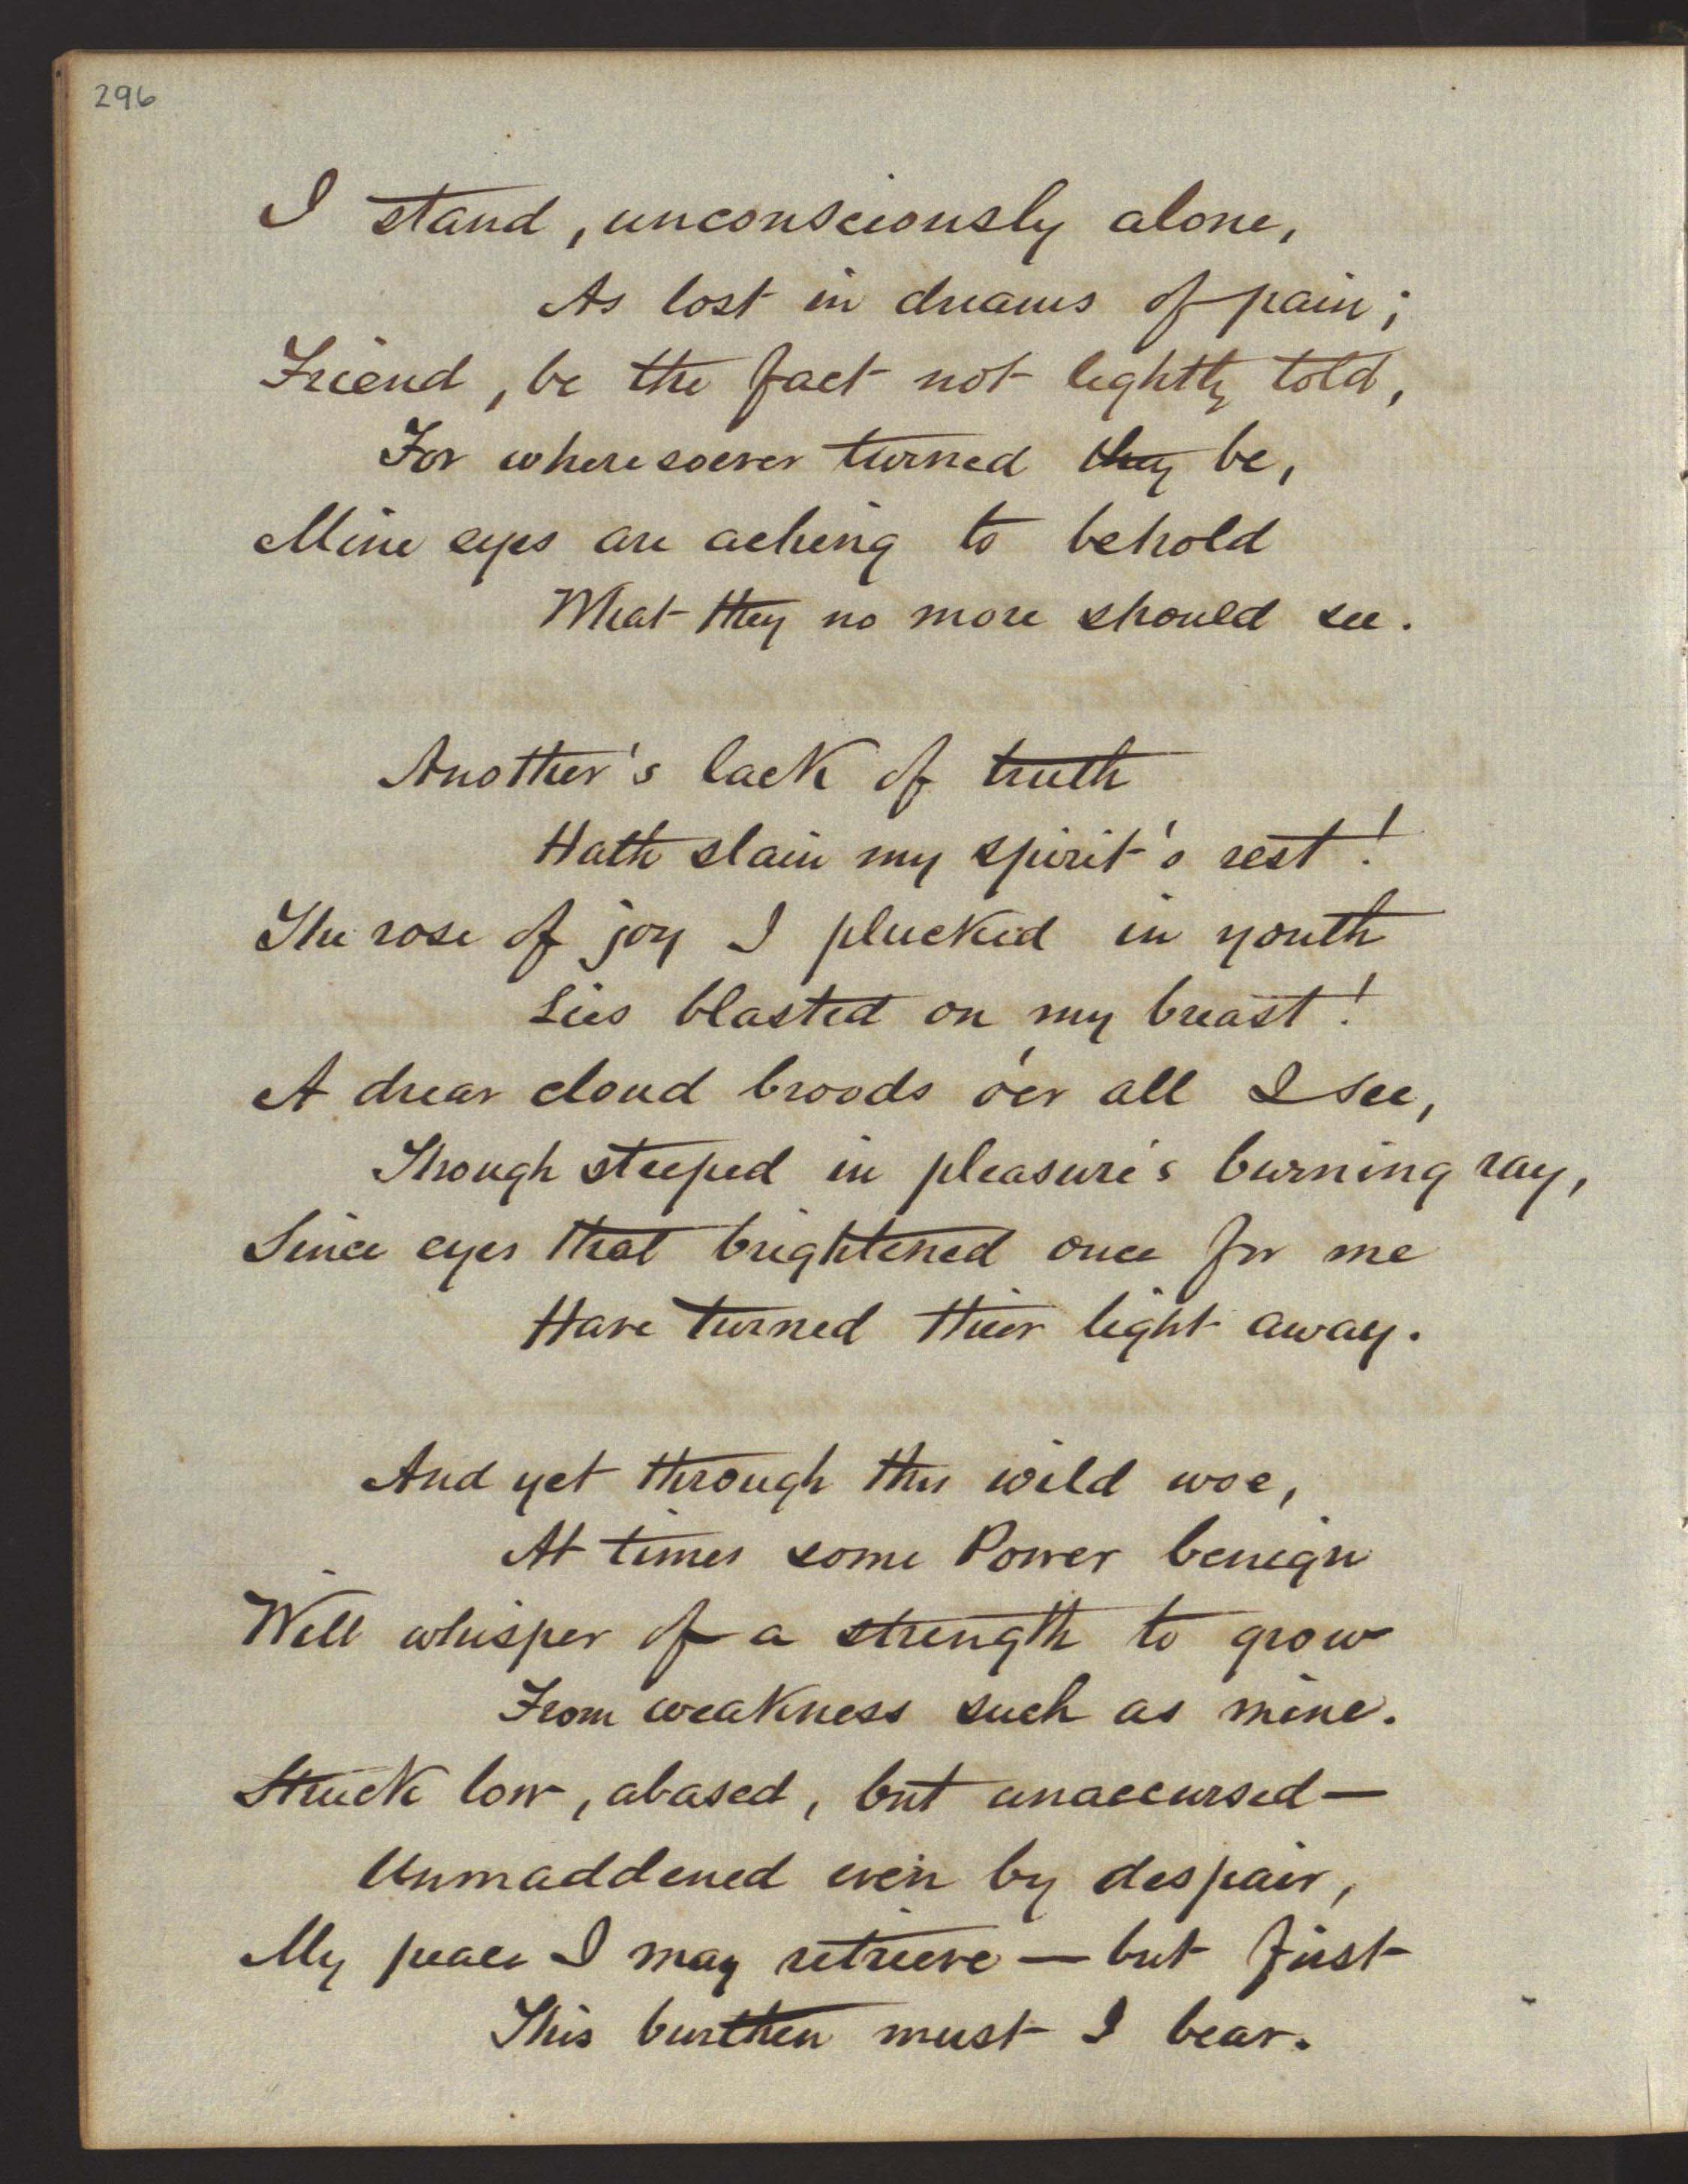 296
I stand, unconsciously alone,
As lost in dreams of pain;
Friend, be the fact not lightly told,
For wheresoever turned they be,
Mine eyes are aching to behold
What they no more should see.
Another's lack of truth
Hath slain my spirit's rest!
The rose of joy I plucked in youth
Lies blasted on my breast!
A drear cloud broods o'er all I see,
Though steeped in pleasure's burning ray,
Since eyes that brightened once for me
Have turned their light away.
And yet through this wild woe,
At times some Power benign
Will whisper of a strength to grow
From weakness such as mine.
Struck low, abased, but unaccursed—
Unmaddened even by despair,
My peace I may retrieve — but first
This burthen must I bear.